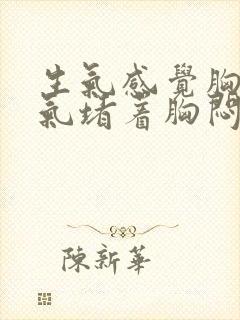 生氣感覺胸
氣堵着胸悶
陳新華